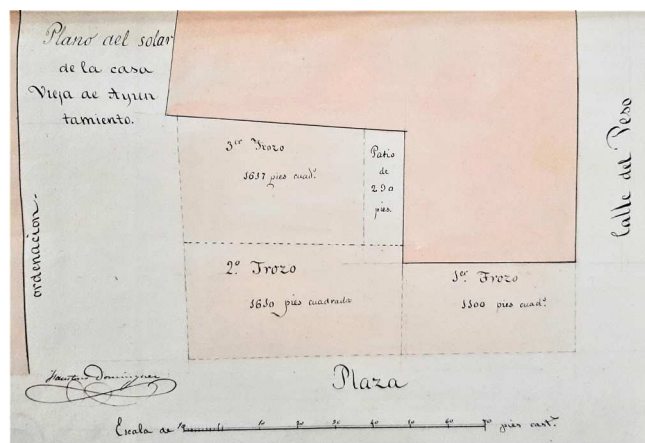 Plano del solar
de la casa
Vieja de Ayun
tamiento.
ordenacion.
3er Trozo
1617 pies cuad.s
Patio
de
290
pies.
2.o Trozo
1610 pies cuadrada
1er Trozo
1100 pies cuad.s
Calle del Peso
Plaza
Dominguez
Escala de 10 20 30 40 50 60 70 pies cast.s